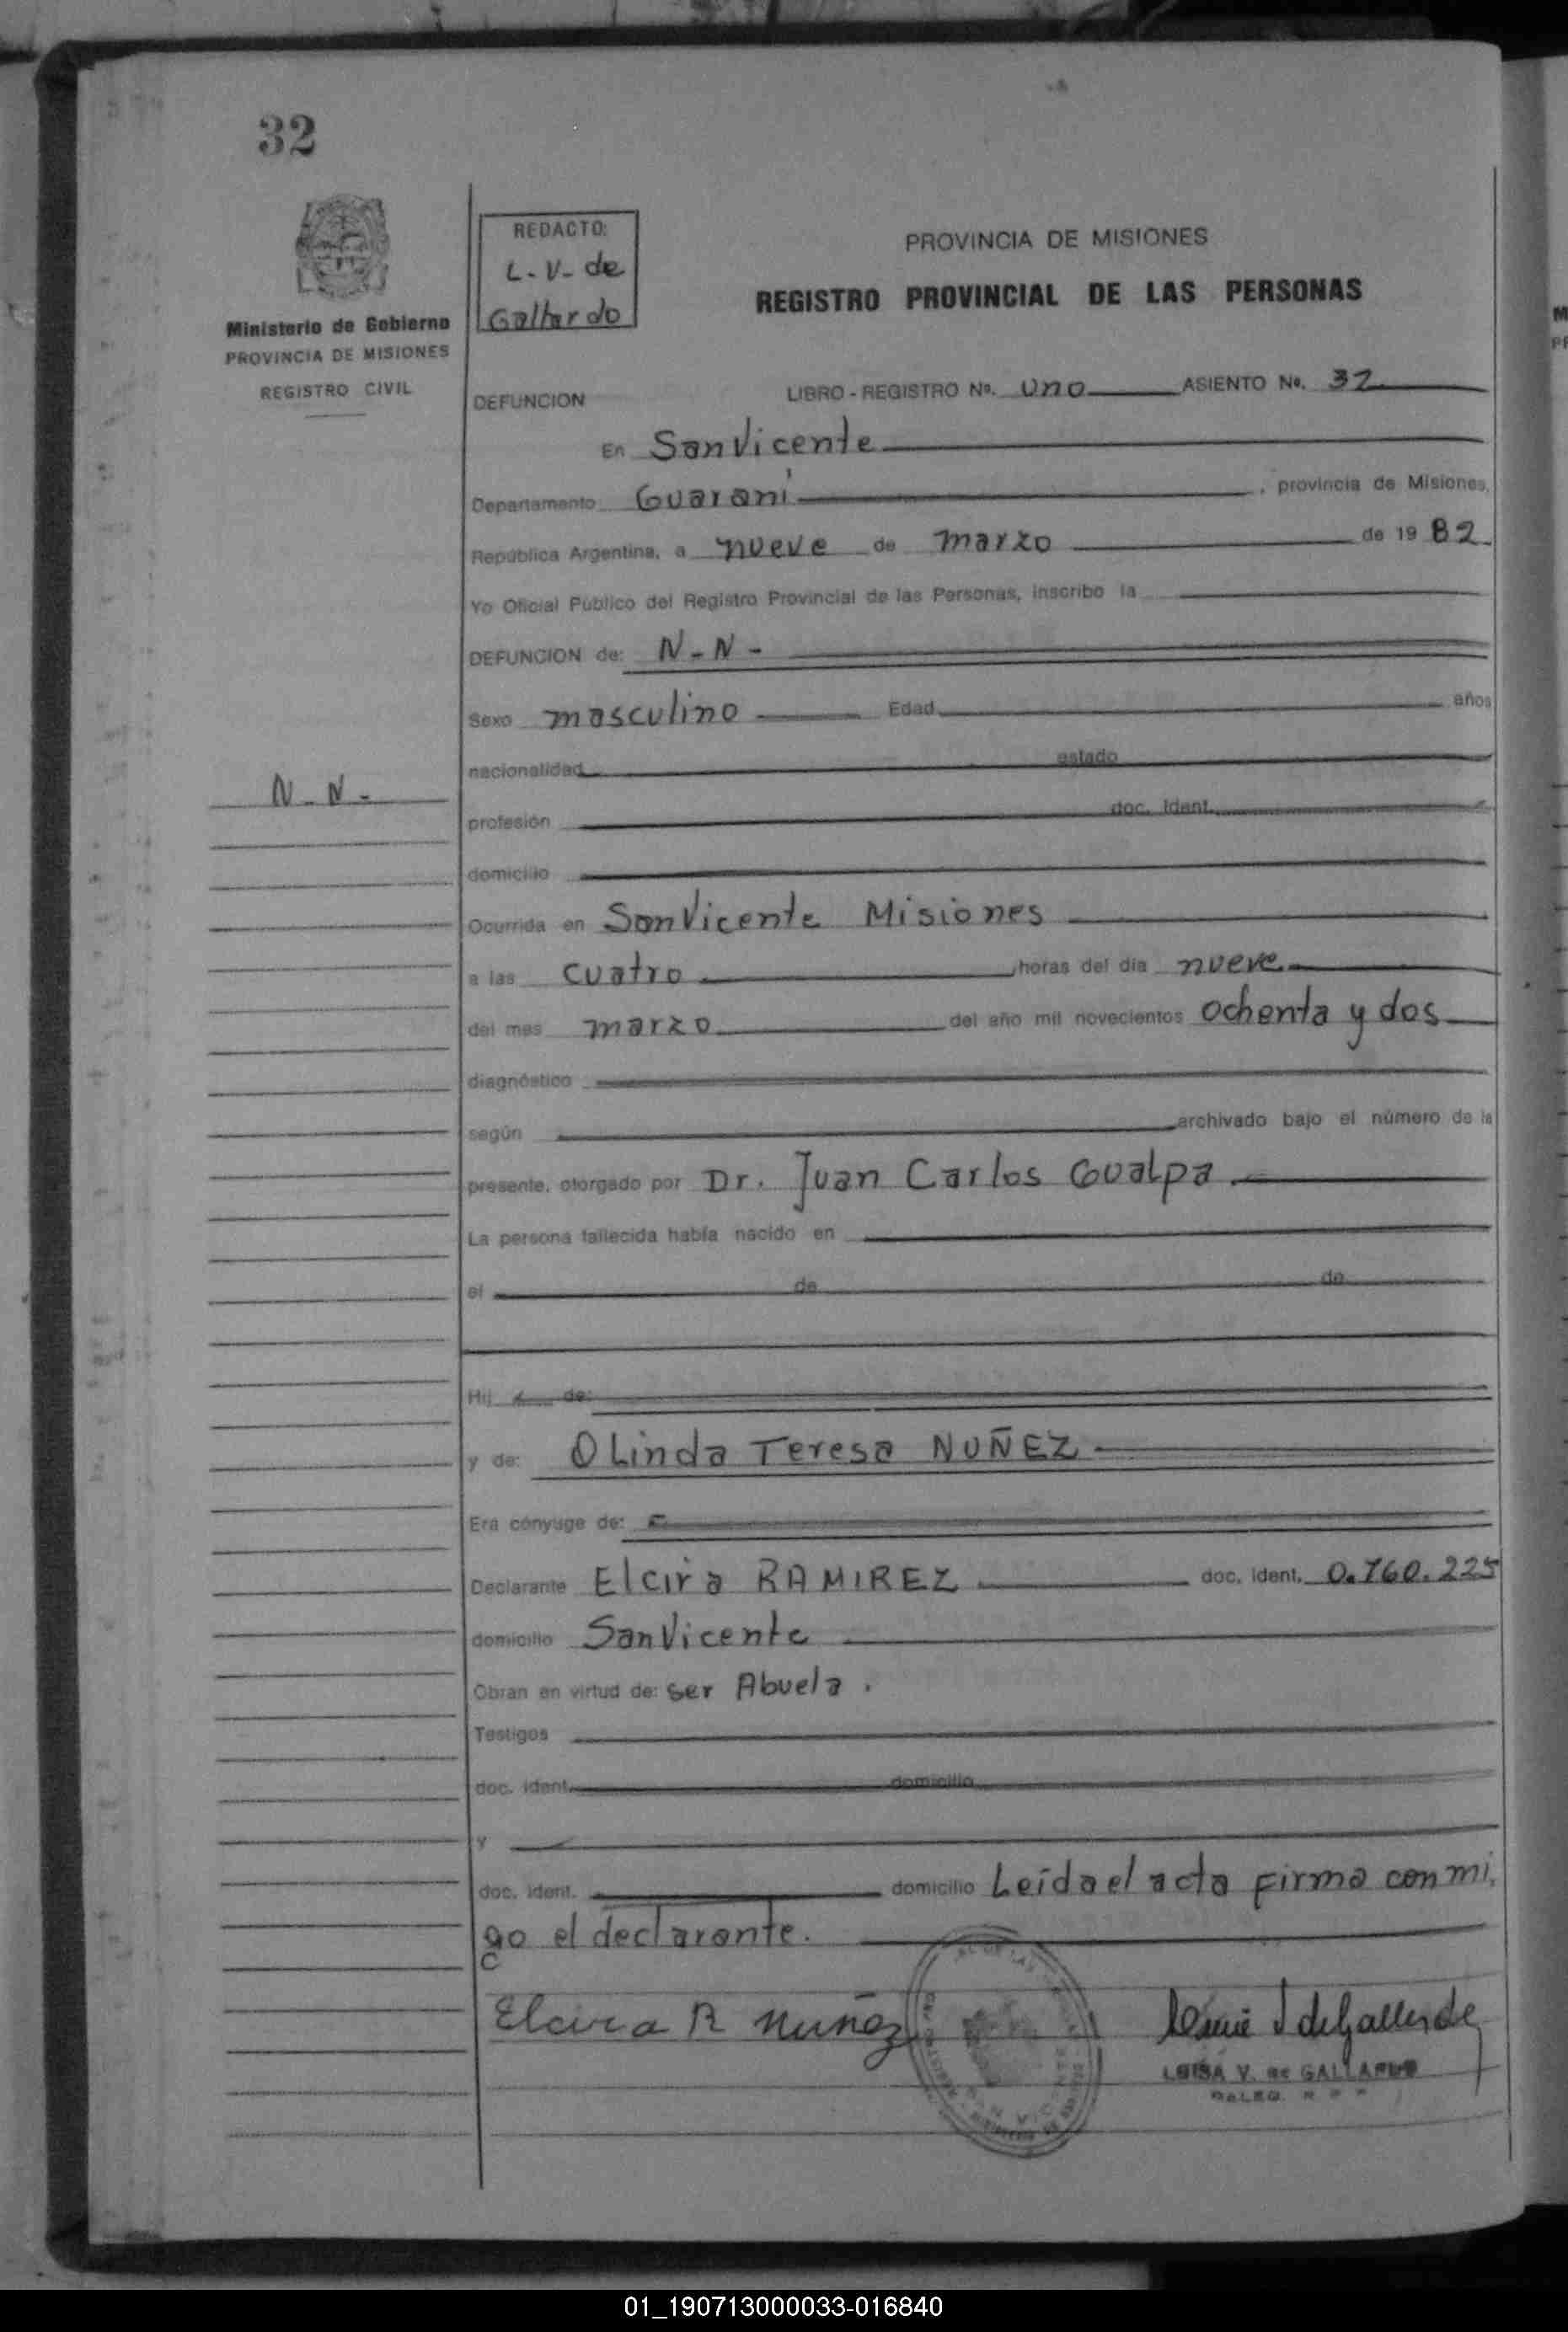 32
REDACTO:
L. V. de
Gallardo
Ministerio de Gobierno
PROVINCIA DE MISIONES
REGISTRO CIVIL
PROVINCIA DE MISIONES
REGISTRO PROVINCIAL DE LAS PERSONAS
DEFUNCION LIBRO - REGISTRO Nº. uno ASIENTO Nº. 32
En San Vicente
Departamento Guaraní, provincia de Misiones,
República Argentina, a nueve de marzo de 19 82
Yo Oficial Público del Registro Provincial de las Personas, inscribo la
DEFUNCION de: N-N-
Sexo masculino Edad años
nacionalidad estado
N-N-
profesión doc. ident.
domicilio
Ocurrida en San Vicente Misiones
a las cuatro horas del día nueve
del mes marzo del año mil novecientos ochenta y dos
diagnóstico
según archivado bajo el número de la
presente, otorgado por Dr. Juan Carlos Gualpa
La persona fallecida había nacido en
el de de
Hij de:
y de: OLinda Teresa NUÑEZ
Era cónyuge de:
Declarante Elcira RAMIREZ doc. ident. 0.760.225
domicilio San Vicente
Obran en virtud de: ser Abuela.
Testigos
doc. ident. domicilio
y
doc. ident. domicilio Leída el acta firma conmi
go el declarante.
Elcira R Nuñez
LUISA V. de GALLARDO
01_190713000033-016840